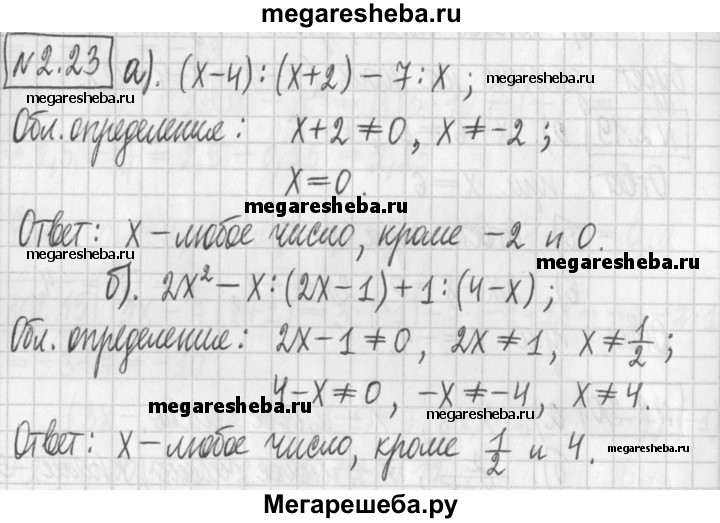 megaresheba.ru
№2.23 а). (x-4):(x+2)-7:x; megaresheba.ru
megaresheba.ru
Обл. определения: x+2≠0, x≠-2;
x=0.
megaresheba.ru
Ответ: x-любое число, кроме -2 и 0.
megaresheba.ru megaresheba.ru
б). 2x²-x:(2x-1)+1:(4-x);
Обл. определения: 2x-1≠0, 2x≠1, x≠1/2;
4-x≠0, -x≠-4, x≠4.
megaresheba.ru megaresheba.ru
Ответ: x-любое число, кроме 1/2 и 4.
megaresheba.ru
Мегарешеба.ру